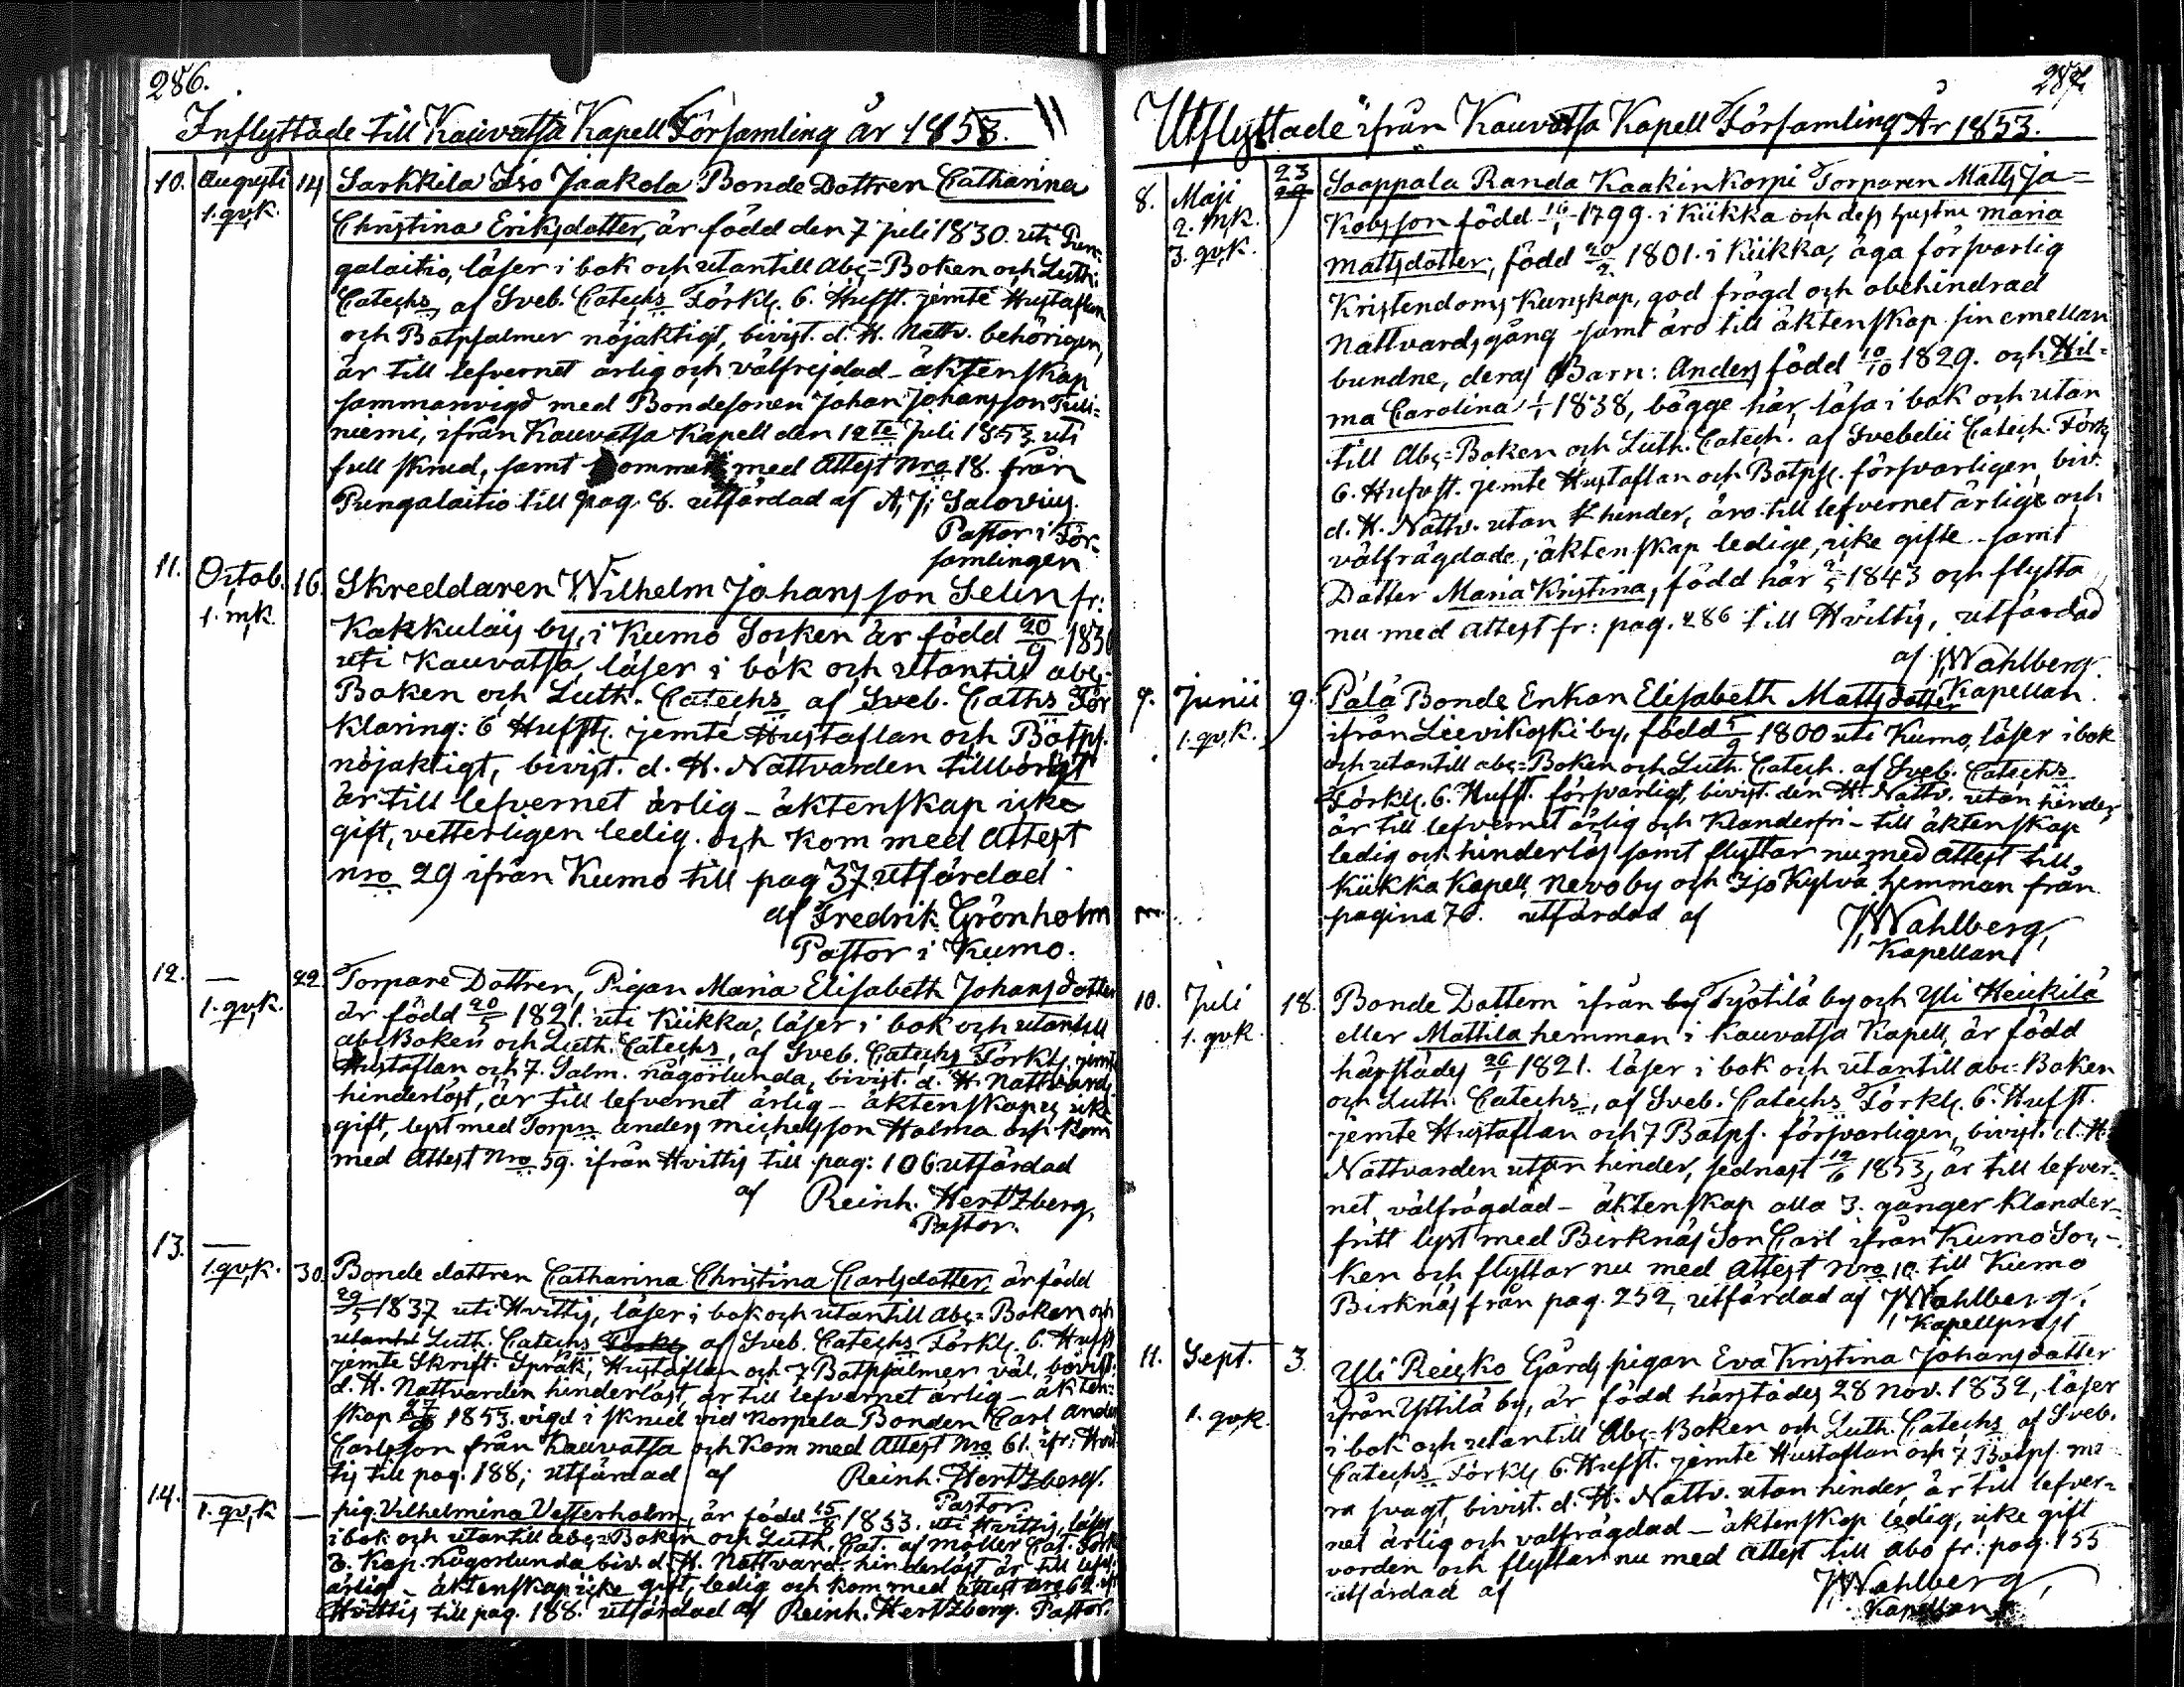 286.
Inflyttade till Kauvatsa Kapell Församling år 1853.
10. Augusti 14 Sarkkila Iso Jaakola Bonde Dottren Catharina
1. qv,k. Christina Eriksdotter, är född den 7 juli 1830. uti Pun-
galaitio, läser i bok och utantill Abc=Boken och Luth:
Catechs, af Sveb. Catechs Förkl. 6. Hufst. jemte Hustaflan
och Botpsalmer nöjaktigt, bivist. d. H. Nattv. behörigen,
är till lefvernet ärlig och välfrejdad - äktenskap
sammanvigd med Bondesonen Johan Johansson Tuli=
niemi, ifrån Kauvatsa Kapell den 12te Juli 1853 uti
full skrud, samt kommit med Attest Nro 18. från
Pungalaitio till pag. 8. utfärdad af A. J. Salovius.
Pastor i För-
samlingen
11. Octob. 16. Skreddaren Wilhelm Johansson Selin fr:
1. mk. Kakkulais by, i Kumo Socken är född 20/9 1830
uti Kauvatsa, läser i bok och utantill abc-
Boken och Luth. Catechs af Sveb. Caths För
klaring: 6 Hufst. jemte Hustaflan och Botps.
nöjaktigt, bivist. d. H. Nattvarden tillbörligt
är till lefvernet ärlig - äktenskap icke
gift, vetterligen ledig. och kom med Attest
nro 29 ifrån Kumo till pag 37 utfärdad
af Fredrik Grönholm
Pastor i Kumo.
12. — 22. Torpare Dottren, Pigan Maria Elisabeth Johansdotter
1. qv,k. är född 20/5 1821. uti Kiikka, läser i bok och utantill
abc Boken och Luth. Catechs, af Sveb. Catechs Förkl. jemte
Hustaflan och 7. Salm. någorlunda, bivist. d. H. Nattvard
hinderlöst, är till lefvernet ärlig - äktenskapes icke
gift, lyst med Torpn Anders Michelsson Halma och kom
med Attest Nro 59. ifrån Hvittis till pag: 106 utfärdad
af Reinh. Hertzberg,
Pastor.
13. — 30. Bonde dottren Catharina Christina Carlsdotter, är född
1. qv,k. 29/5 1837 uti Hvittis, läser i bok och utantill Abc=Boken och
utantil Luth. Catechs Förkls af Sveb. Catechs Förkl. 6. Hufst
jemte Skrift. Språk, Hustaflan och 7 Botpsalmer väl, bevist.
d. H. Nattvarden hinderlöst, är till lefvernet ärlig - äkten-
skap 1853. vigd i skrud vid Korpela Bonden Carl Ander
Carlsson från Kauvatsa och kom med Attest Nro 61. ifr: Hvit
tis till pag. 188; utfärdad af Reinh. Hertzberg.
Pastor.
14. — 1. qv,k — pig. Vilhelmina Vesterholm, är född 1833. uti Hvittis, läser
i bok och utantill abc=Boken och Luth. Cat. af Möller Cat. Förk
3. Kap. någorlunda biv. d. H. Nattvard hinderlöst är till lefv.
ärlig - äktenskap icke gift, ledig och kom med attest nro 62. ifr
Hvittis till pag. 188. utfärdad af Reinh. Hertzberg. Pastor.
287.
Utflyttade ifrån Kauvatsa Kapell Församling År 1853.
8. Maji 23 29 Saappala Randa Kaakinkorpi Torparen Matts Ja=
2. mk. kobsson född 1799. i Kiikka och dess hustru Maria
3. qv,k. Mattsdotter, född 20/2 1801. i Kiikka, äga försvarlig
Kristendoms Kunskap, god frägd och obehindrad
Nattvardsgång samt äro till äktenskap sin emellan
bundne, deras Barn: Anders född 10/10 1829. och Hil=
ma Carolina 1/1 1838, bägge här, läsa i bok och utan
till Abc=Boken och Luth. Catech. af Svebelii Catech. Förk
6. Hufvst. jemte Hustaflan och Botps. försvarligen, biv.
d. H. Nattv. utan hinder, äro till lefvernet ärlige och
välfrägdade, äktenskap ledige, icke gifte - samt
Dotter Maria Kristina, född här 1843 och flytta
nu med attest fr: pag. 286 till Hvittis, utfärdad
af J. Wahlberg.
Kapellan.
9. Junii 9. Pälä Bonde Enkan Elisabeth Mattsdotter
1. qv,k. ifrån Lievikoski by, född 5/9 1800 uti Kumo, läser i bok
och utantill abc=Boken och Luth. Catech. af Sveb. Catechs
Förkl. 6. Hufst. försvarligt, bivist den H. Nattv. utan hinder
är till lefvernet ärlig och klanderfri - till äktenskap
ledig och hinderlös samt flyttar nu med attest till
Kiikka Kapell, Nevo by och Isokylvä hemman från
pagina 76. utfärdad af J. Wahlberg,
Kapellan
10. Juli 18. Bonde Dottern ifrån by Työtilä by och Yli Heickilä
1. qvk. eller Mattila hemman i Kauvatsa Kapell, är född
härstädes 26/1 1821. läser i bok och utantill abc=Boken
och Luth. Catechs, af Sveb. Catechs Förkl. 6. Hufst.
jemte Hustaflan och 7 Botps. försvarligen, bivist. d. H.
Nattvarden utan hinder, sednast 12/6 1853, är till lefver-
net välfrägdad - äktenskap alla 3. gånger klander-
fritt lyst med Birknäs Son Carl ifrån Kumo Soc-
ken och flyttar nu med Attest Nro 10. till Kumo
Birknäs från pag. 252, utfärdad af J. Wahlberg.
Kapellprest
11. Sept. 3. Yli Reicko Gårds pigan Eva Kristina Johansdotter
1. qvk. ifrån Yttilä by, är född härstädes 28 Nov. 1832, läser
i bok och utantill Abc=Boken och Luth. Catechs af Sveb.
Catechs Förkl. 6. Hufst. jemte Hustaflan och 7 Botps. me-
ra svagt, bivist. d. H. Nattv. utan hinder, är till lefver-
net ärlig och välfrägdad - äktenskap ledig, icke gift
vorden och flyttar nu med Attest till Abo fr: pag. 155
utfärdad af J. Wahlberg,
Kapellan